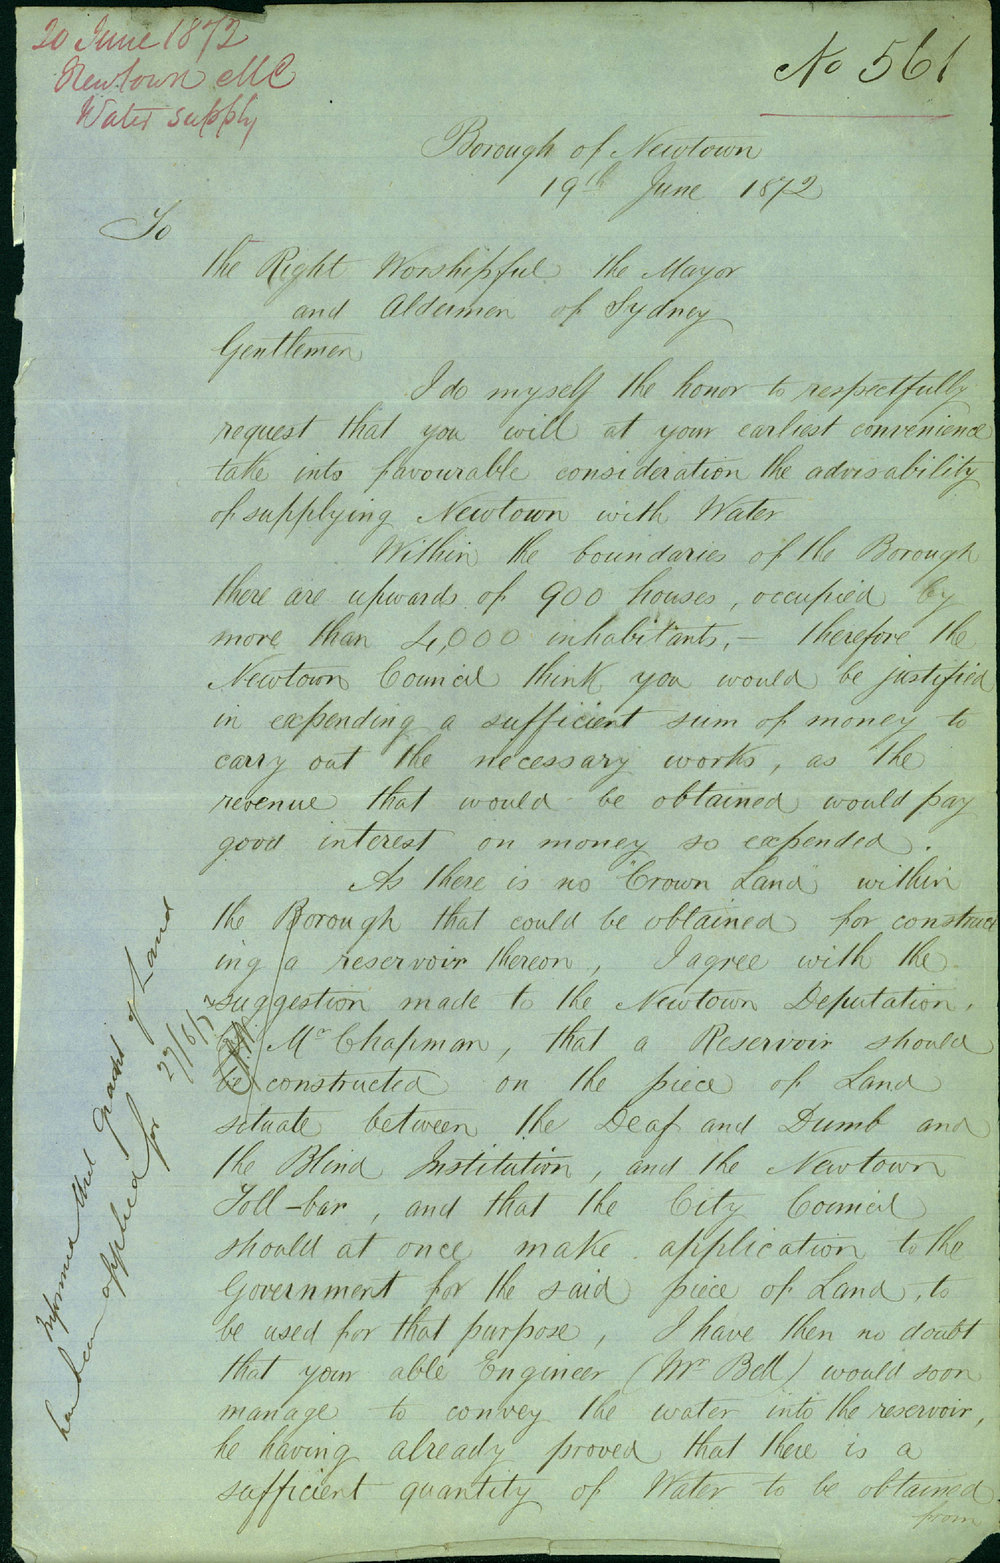 20 June 1872
Newtown MC
Water supply
No 561
Borough of Newtown
19th June 1872
To
the Right Worshipful the Mayor
and Aldermen of Sydney
Gentlemen
I do myself the honor to respectfully
request that you will at your earliest convenience
take into favourable consideration the advisability
of supplying Newtown with Water
Within the boundaries of the Borough
there are upwards of 900 houses, occupied by
more than 4,000 inhabitants, – therefore the
Newtown Council think you would be justified
in expending a sufficient sum of money to
carry out the necessary works, as the
revenue that would be obtained would pay
good interest on money so expended.
As there is no "Crown Land" within
the Borough that could be obtained for construct
ing a reservoir thereon, I agree with the
suggestion made to the Newtown Deputation,
by Mr Chapman, that a Reservoir should
be constructed on the piece of Land
situate between the Deaf and Dumb and
the Blind Institution, and the Newtown
Toll-bar, and that the City Council
should at once make application to the
Government for the said piece of Land, to
be used for that purpose, I have then no doubt
that your able Engineer (Mr Bell) would soon
manage to convey the water into the reservoir,
he having already proved that there is a
sufficient quantity of Water to be obtained
from
Informed that grant of Land
has been applied for
27/6/72